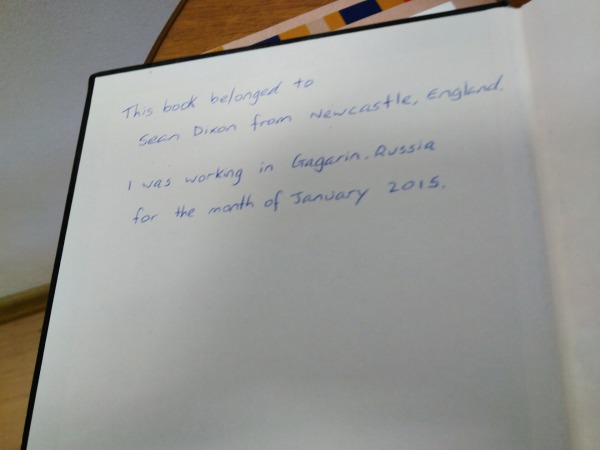 This book belonged to
Sean Dixon from Newcastle, England.
I was working in Gagarin, Russia
for the month of January 2015.